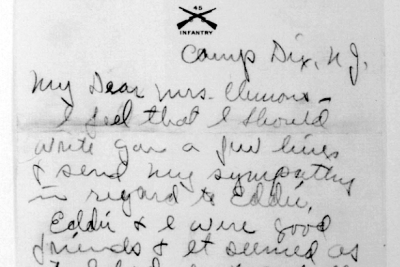 45
INFANTRY
Camp Dix, N.J.
My Dear Mrs.
I feel that I should
write you a few lines
& send my sympathy
in regard to Eddie,
Eddie & I were good
friends & it seemed as